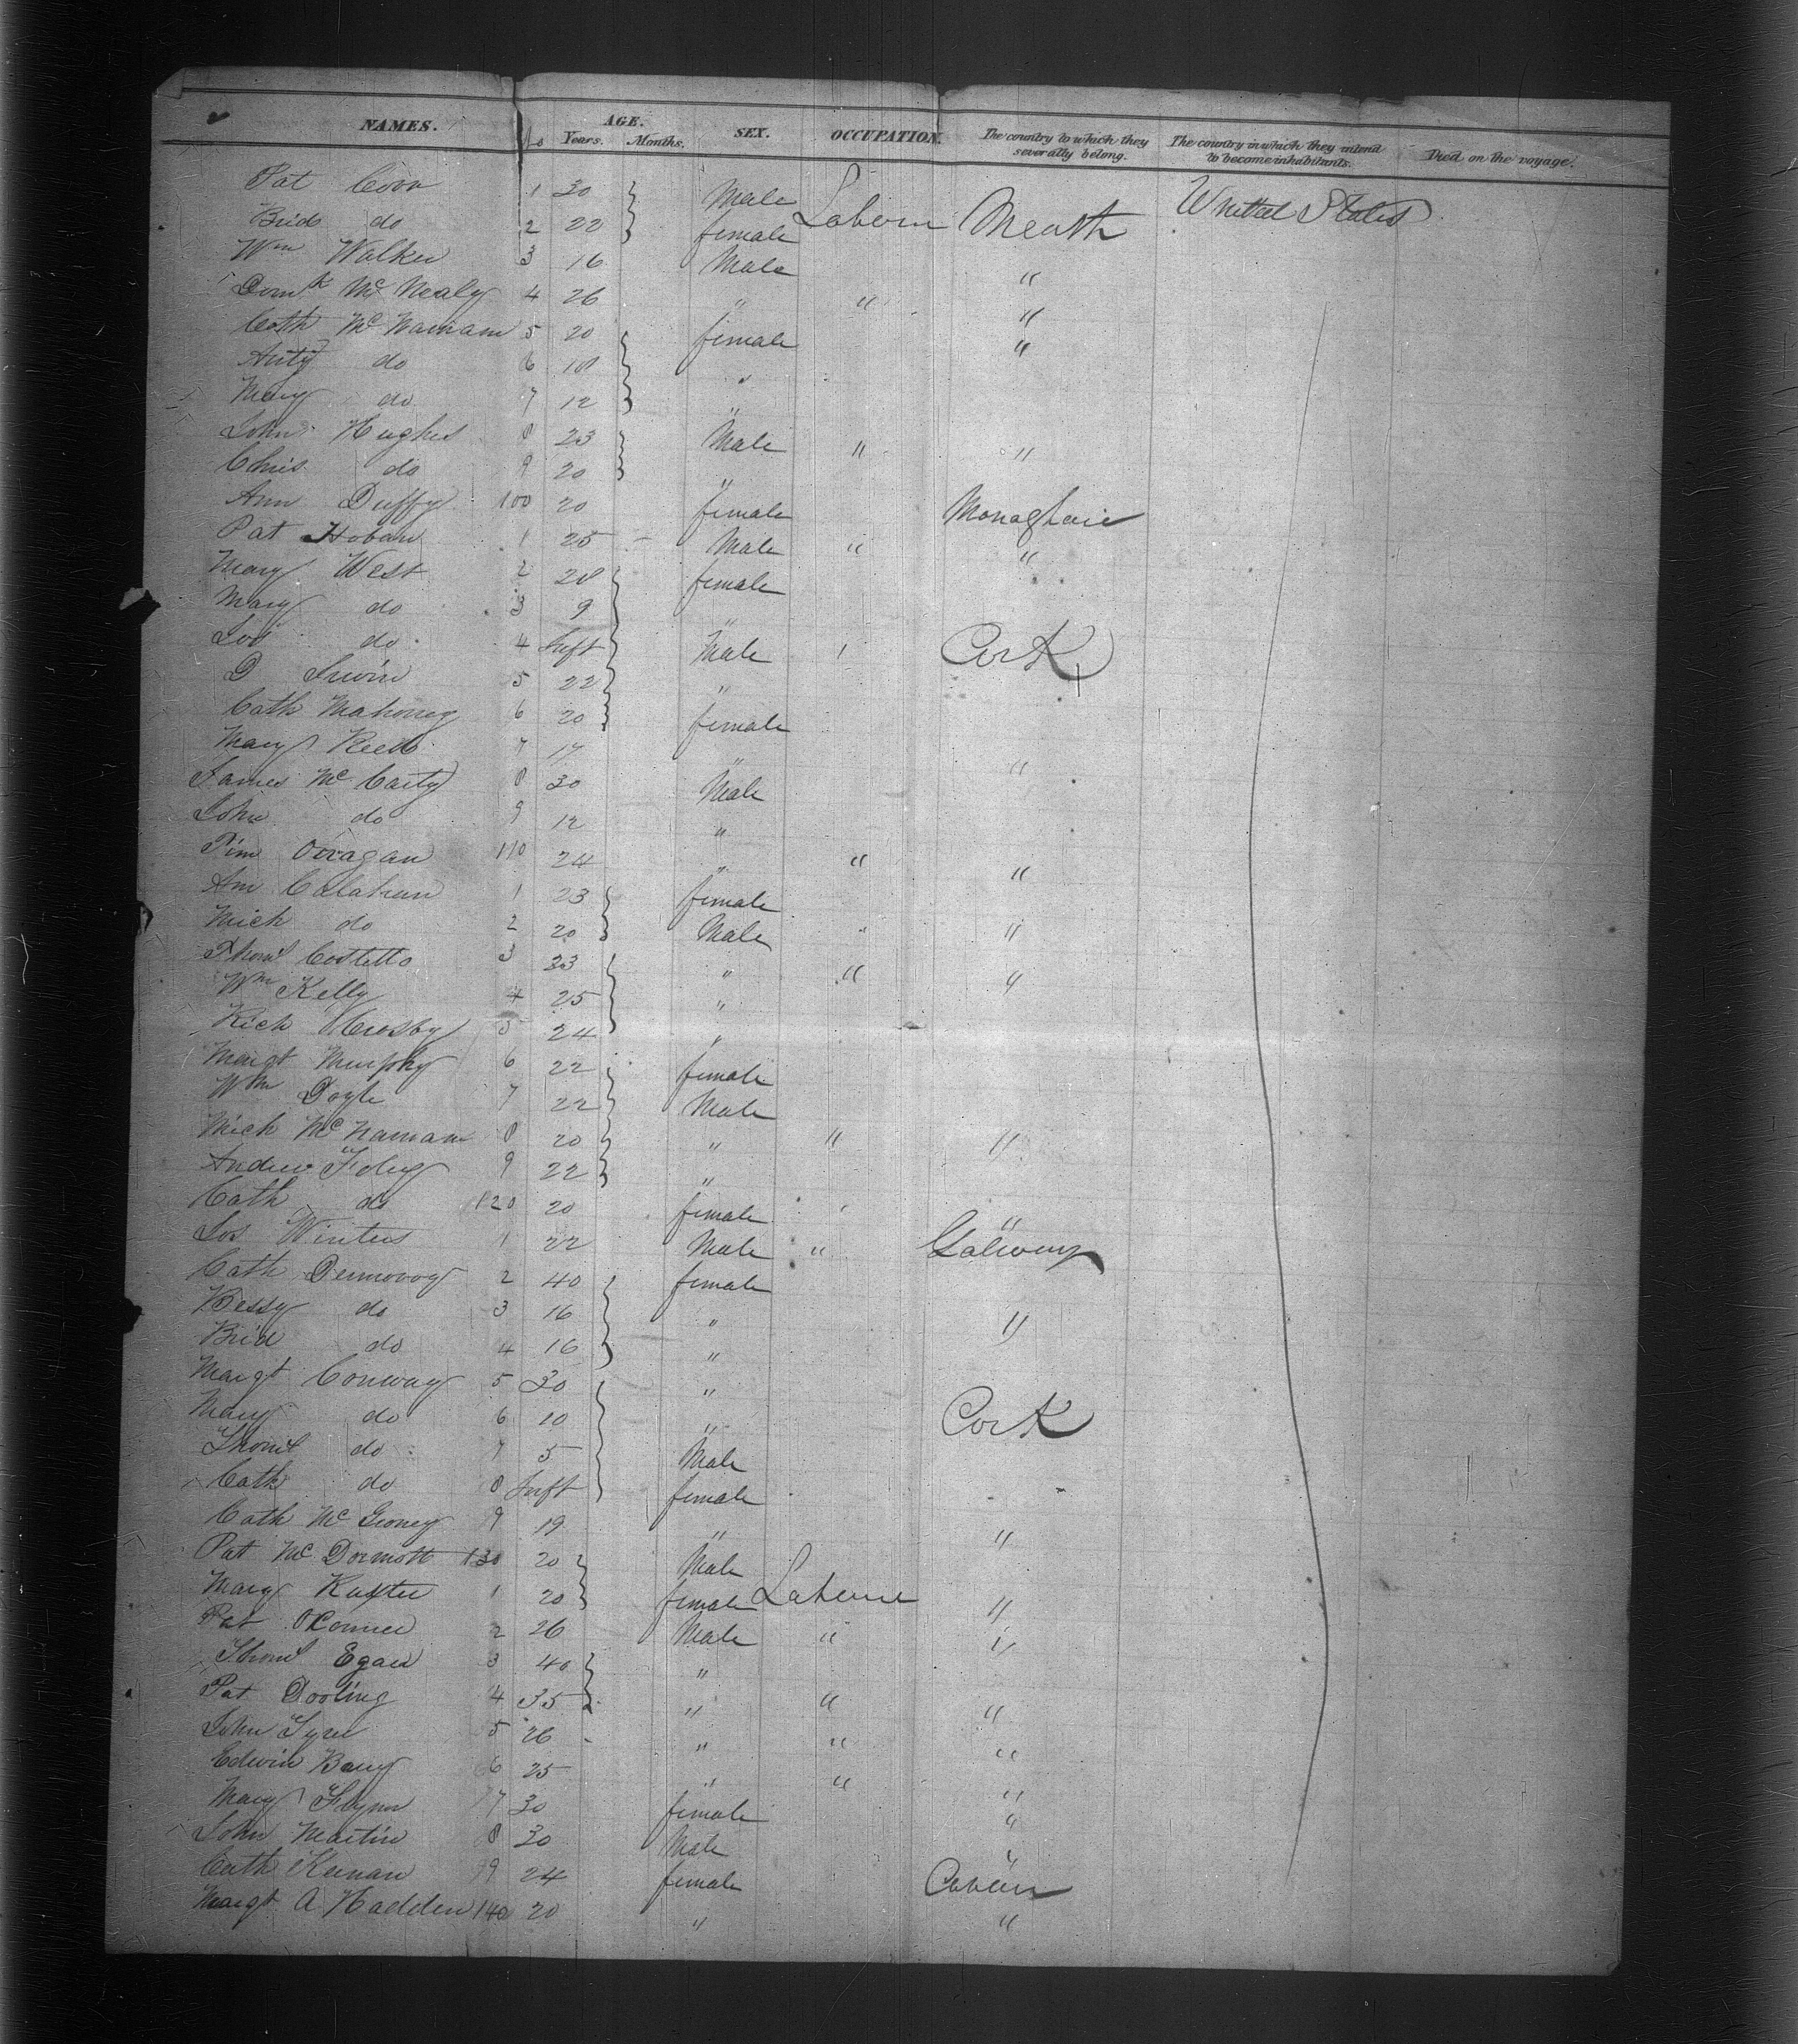 NAMES. No AGE. Years. Months. SEX. OCCUPATION. The country to which they severally belong. The country in which they intend to become inhabitants. Died on the voyage.
Pat 1 30 Male Laborer Meath United States
Brid do 2 22 female
Wm Walker 3 16 Male "
Domk Mc Nealy 4 26 " " "
Cath Mc Namara 5 20 female "
Anty do 6 18 "
Mary do 7 12 "
John Hughes 8 23 Male " "
Chris do 9 20 "
Ann Duffy 100 20 female Monaghan
Pat Hoban 1 25 Male " "
Mary West 2 28 female
Mary do 3 9 "
Jos do 4 Inft Male Cork
D Irwin 5 22 "
Cath Mahoney 6 20 female
Mary Reed 7 17 " "
James Mc Carty 8 30 Male
John do 9 12 "
Tim 110 24 " " "
Ann Calahan 1 23 female
Mich do 2 20 Male " "
Thoms Costello 3 23 " " "
Wm Kelly 4 25 "
Rich Crosby 5 24 "
Margt Murphy 6 22 female
Wm Doyle 7 22 Male
Mich Mc Namara 8 20 " " "
Andrew Foley 9 22 "
Cath do 120 20 female "
Jos Winters 1 22 Male " Galway
Cath 2 40 female
Bessy do 3 16 " "
Brid do 4 16 "
Margt Conway 5 30 "
Mary do 6 10 " Cork
Thoms do 7 5 Male
Cath do 8 Inft female
Cath Mc 9 19 " "
Pat Mc Dormott 130 20 Male
Mary 1 20 female Laborer "
Pat O Conner 2 26 Male " "
Thoms Egan 3 40 "
Pat Dooling 4 35 " " "
John 5 26 " " "
Edwin Barry 6 25 " " "
Mary Flynn 7 30 female "
John Martin 8 30 Male "
Cath Keenan 9 24 female Cavan
Margt A Hadden 140 20 " "